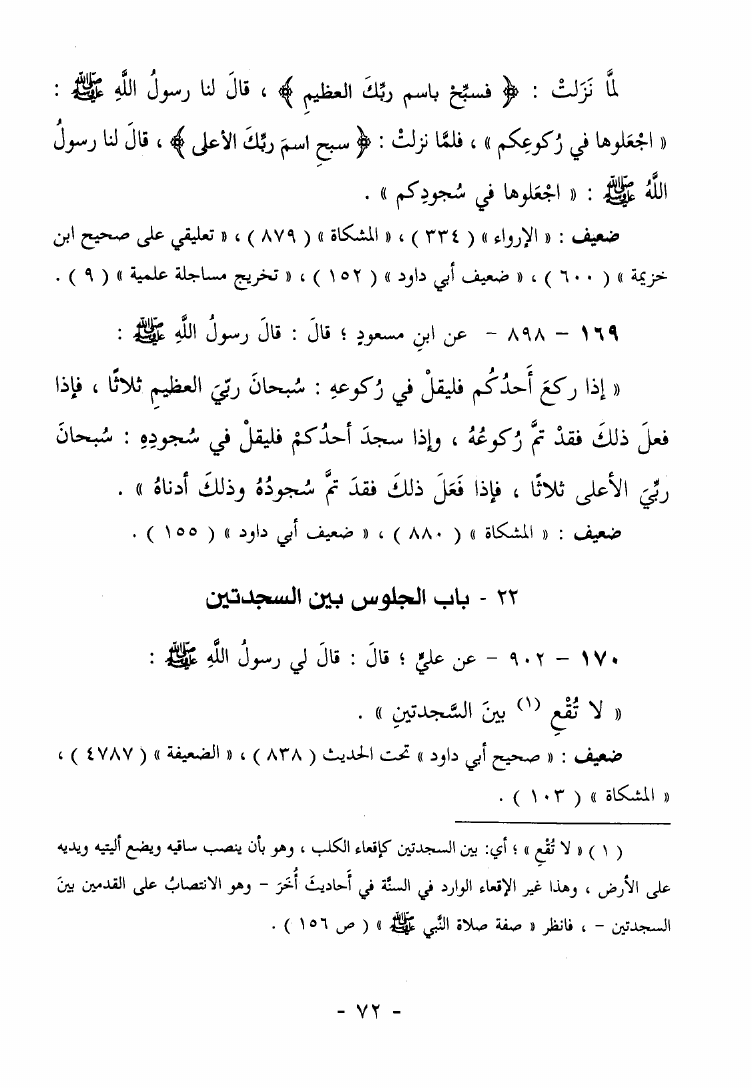 لمَّا نَزَلتْ : ﴿ فسبِّحْ باسم ربِّكَ العظيمِ ﴾ ، قالَ لنا رسولُ اللَّهِ ﷺ :
« اجْعَلوها في رُكوعِكم » ، فلمَّا نزلتْ : ﴿ سبحِ اسمَ ربِّكَ الأعلى ﴾ ، قالَ لنا رسولُ
اللَّهُ ﷺ : « اجْعَلوها في سُجودِكم » .
ضعيف : « الإرواء » ( ٣٣٤ ) ، « المشكاة » ( ٨٧٩ ) ، « تعليقي على صحيح ابن
خزيمة » ( ٦٠٠ ) ، « ضعيف أبي داود » ( ١٥٢ ) ، « تخريج مساجلة علمية » ( ٩ ) .
١٦٩ – ٨٩٨ – عن ابنِ مسعودٍ ؛ قالَ : قالَ رسولُ اللَّهِ ﷺ :
« إذا ركعَ أَحدُكُم فليقلْ في رُكوعهِ : سُبحانَ ربّيَ العظيمِ ثلاثًا ، فإذا
فعلَ ذلكَ فقدْ تمَّ رُكوعُهُ ، وإذا سجدَ أحدُكمْ فليقلْ في سُجودِهِ : سُبحانَ
ربِّيَ الأعلى ثلاثًا ، فإذا فَعَلَ ذلكَ فقدَ تمَّ سُجودُهُ وذلكَ أدناهُ » .
ضعيف : « المشكاة » ( ٨٨٠ ) ، « ضعيف أبي داود » ( ١٥٥ ) .
٢٢ - باب الجلوس بين السجدتين
١٧٠ – ٩٠٢ – عن عليٍّ ؛ قالَ : قالَ لي رسولُ اللَّهِ ﷺ :
« لا تُقْعِ (١) بينَ السَّجدتينِ » .
ضعيف : « صحيح أبي داود » تحت الحديث ( ٨٣٨ ) ، « الضعيفة » ( ٤٧٨٧ ) ،
« المشكاة » ( ١٠٣ ) .
( ١ ) « لا تُقْعِ » ؛ أي: بين السجدتين كإقعاء الكلب ، وهو بأن ينصب ساقيه ويضع أليتيه ويديه
على الأرض ، وهذا غير الإقعاء الوارد في السنَّة في أَحاديثَ أُخَرَ – وهو الانتصابُ على القدمين بينَ
السجدتين – ، فانظر « صفة صلاة النَّبي ﷺ » ( ص ١٥٦ ) .
- ٧٢ -